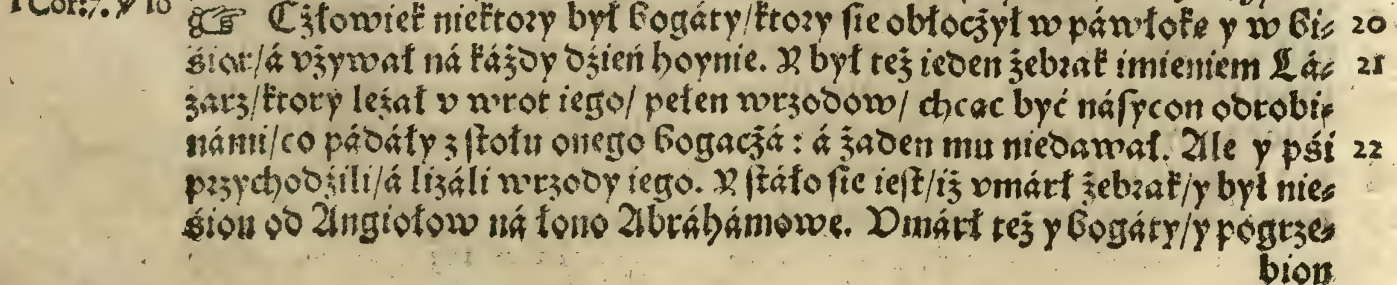 1 Cor: 7. y 10
☞ Cżłowiek niektory był bogáty/ktory sie obłocżył w páwłoke y w bi- 20
śior/á vżywał ná káżdy dźień hoynie. Y był też ieden żebrak imieniem Lá- 21
zarz/ktory leżał v wrot iego/ pełen wrzodow/ chcac być násycon odrobi-
námi/co pádáły z stołu onego bogacżá : á żaden mu niedawał. Ale y pśi 22
przychodźili/á lizáli wrzody iego. Y stáło sie iest/iż vmárł żebrak/y był nie-
śion od Angiołow ná łono Abráhámowe. Vmárł też y bogáty/y pogrze-
bion